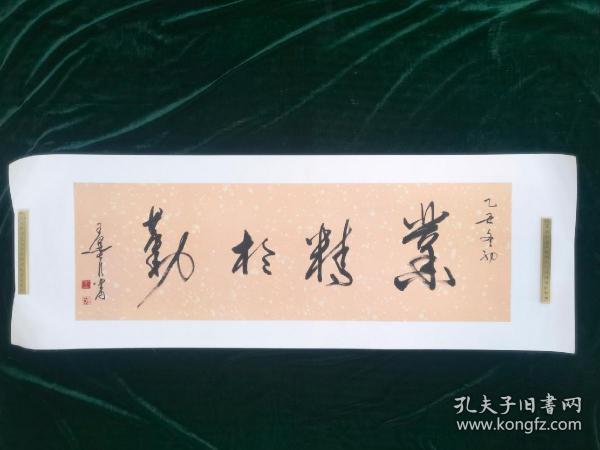 乙丑冬初
業精於勤
孔夫子旧書网
www.kongfz.com